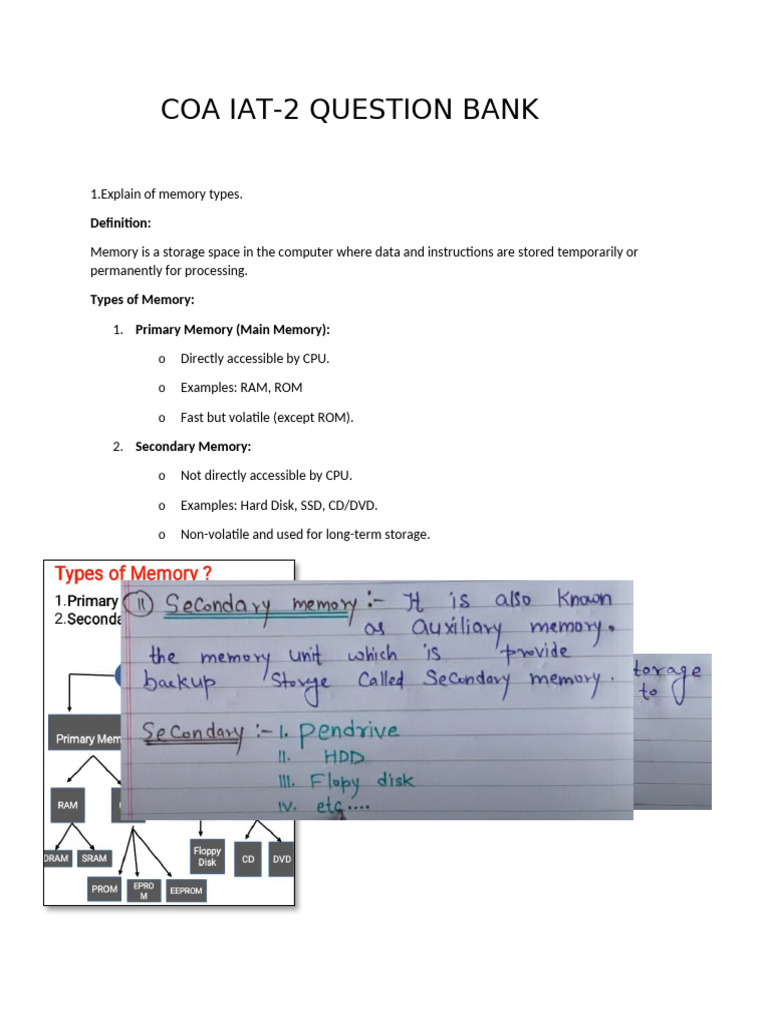 COA IAT-2 QUESTION BANK
1.Explain of memory types.
Definition:
Memory is a storage space in the computer where data and instructions are stored temporarily or
permanently for processing.
Types of Memory:
1. Primary Memory (Main Memory):
o Directly accessible by CPU.
o Examples: RAM, ROM
o Fast but volatile (except ROM).
2. Secondary Memory:
o Not directly accessible by CPU.
o Examples: Hard Disk, SSD, CD/DVD.
o Non-volatile and used for long-term storage.
Types of Memory ?
1.Primary
2.Seconda
Primary Mem
RAM
DRAM SRAM
PROM EPRO
M EEPROM
Floppy
Disk
CD DVD
II Secondary memory :- It is also known
as auxiliary memory.
the memory unit which is provide
backup Storge Called Secondary memory.
Secondary :- I. Pendrive
II. HDD
III. Flopy disk
IV. etc....
torage
to